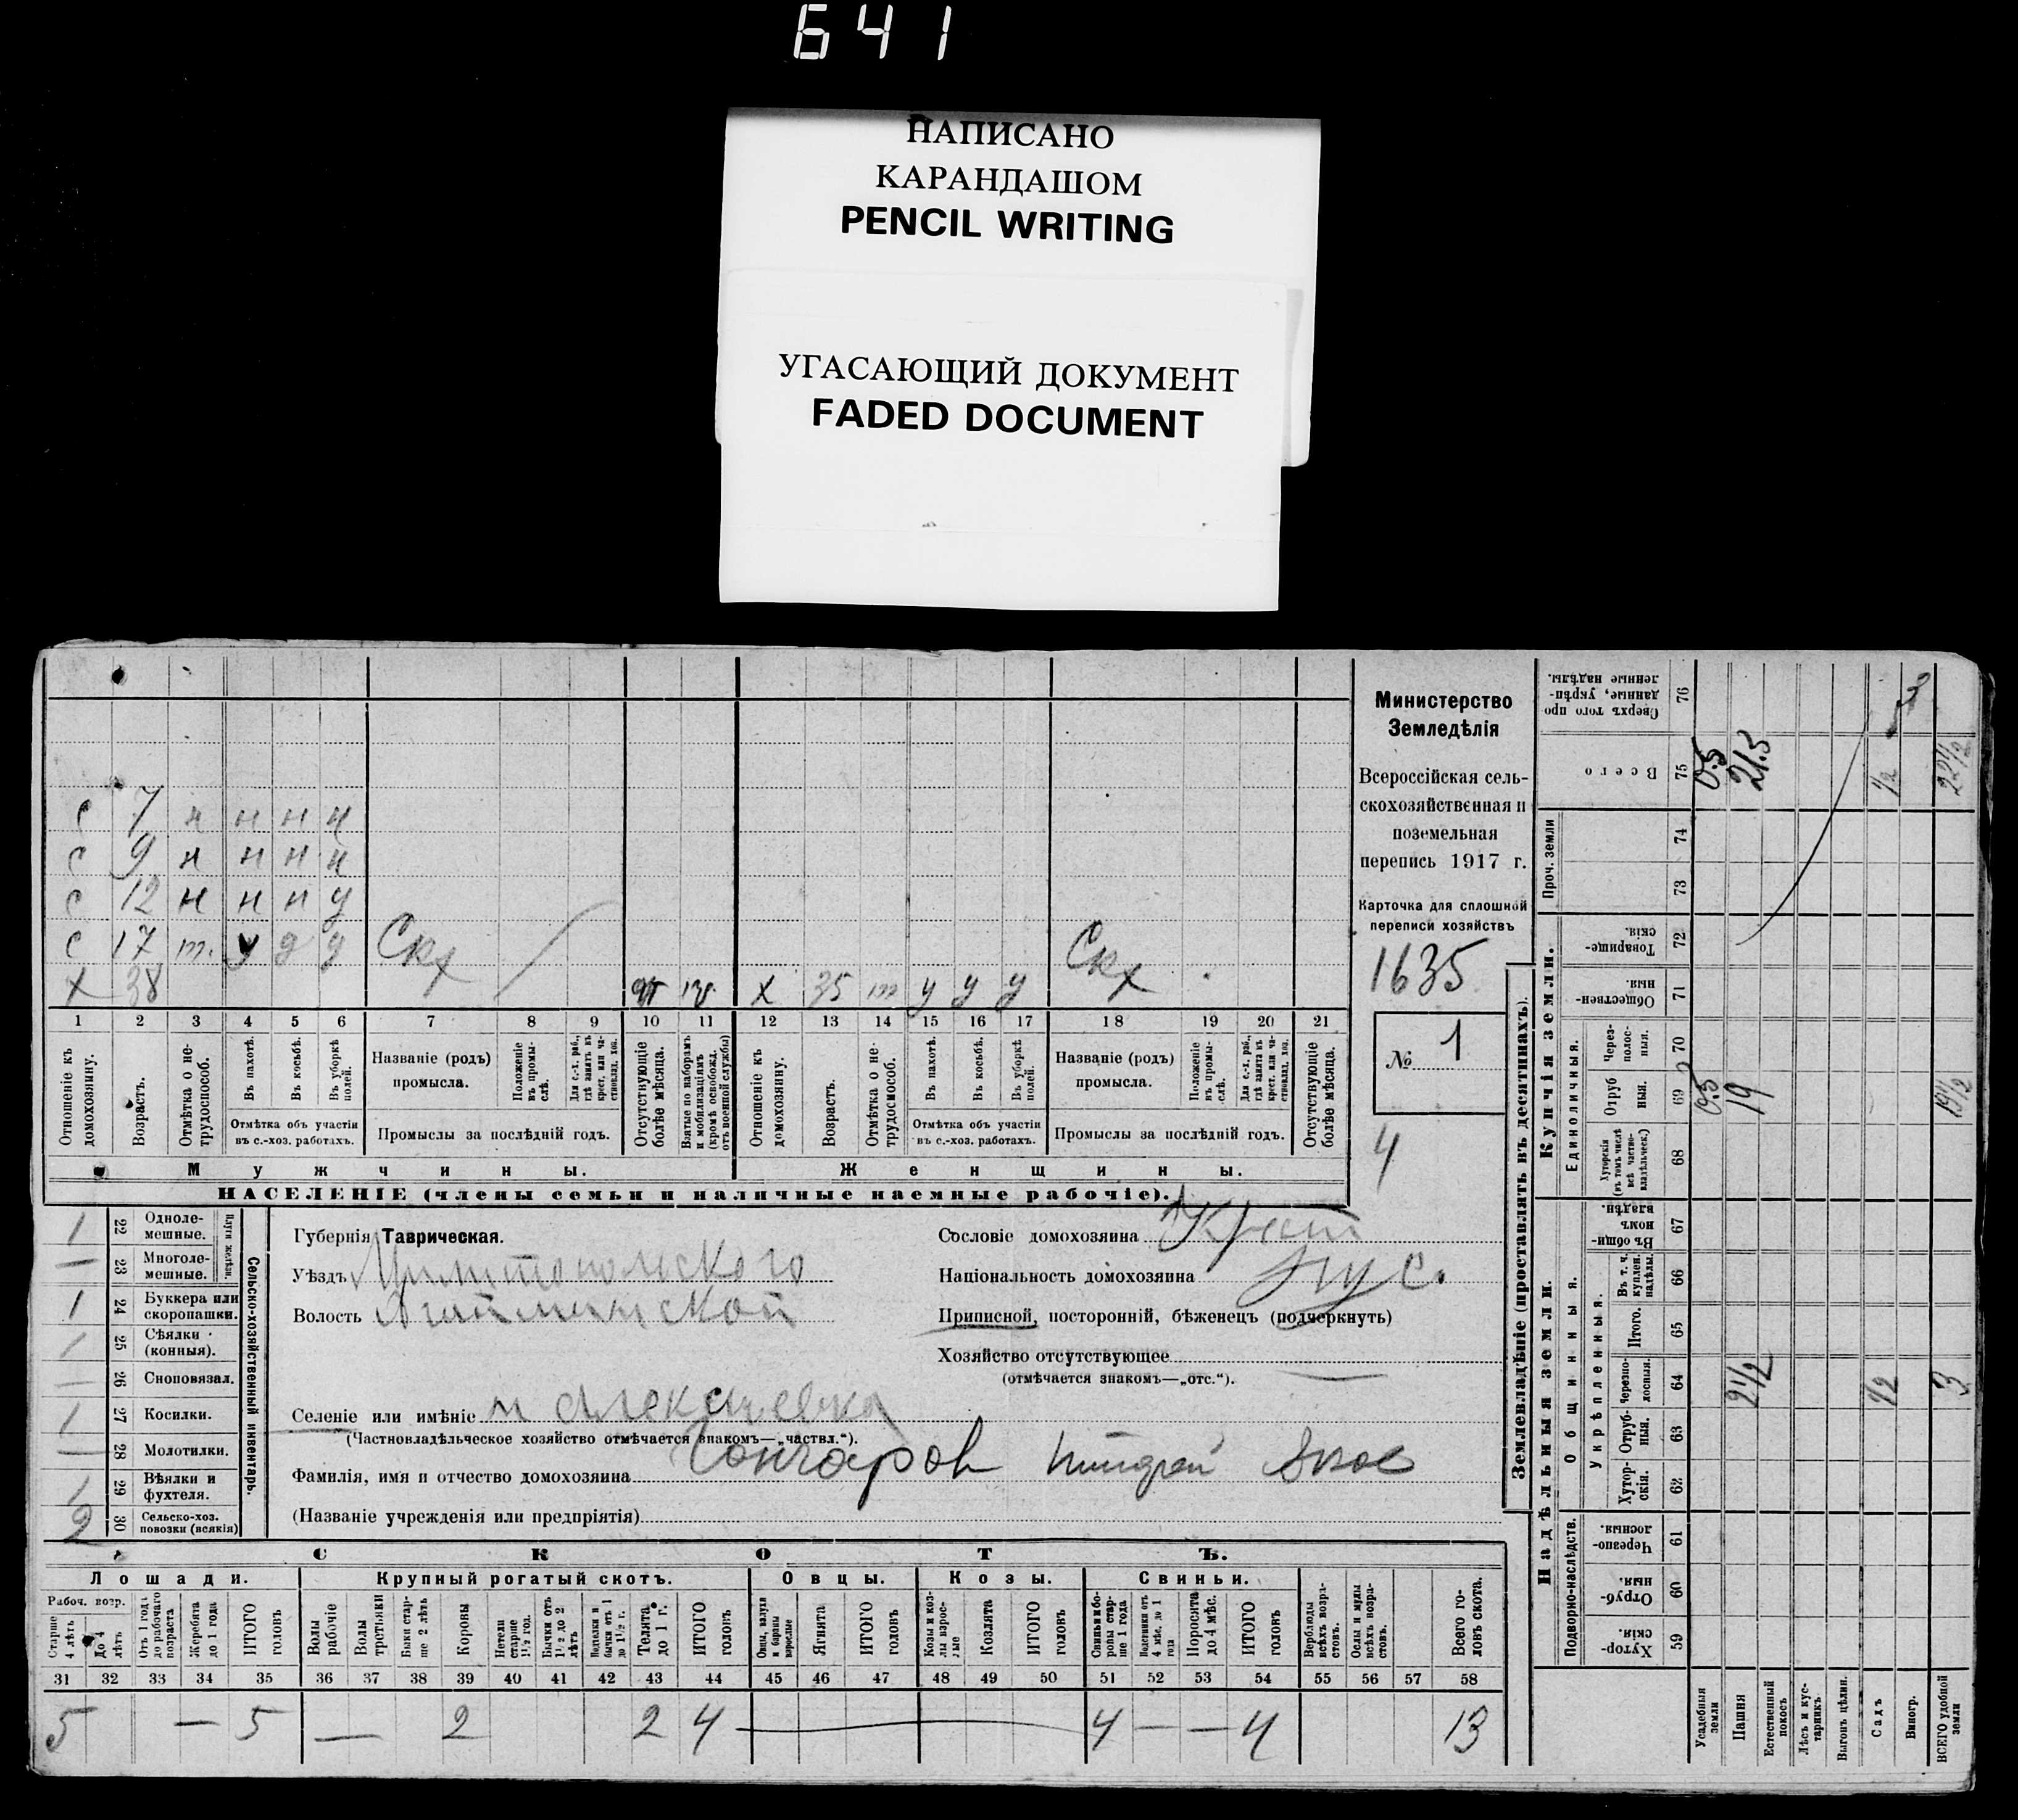 641
НАПИСАНО
КАРАНДАШОМ
PENCIL WRITING
УГАСАЮЩИЙ ДОКУМЕНТ
FADED DOCUMENT
с 7 н н н н
с 9 н н н н
с 12 н н н у
с 17 т. у у у Скх Скх
х 38 х 35 т у у у
1 2 3 4 5 6 7 8 9 10 11 12 13 14 15 16 17 18 19 20 21
Отношеніе къ домохозяину.
Возрастъ.
Отмѣтка о нетрудоспособ.
Въ пахотѣ.
Въ косьбѣ.
Въ уборкѣ полей.
Отмѣтка объ участіи въ с.-хоз. работахъ.
Названіе (родъ) промысла.
Положеніе въ промыслѣ.
Для с.-х. раб., гдѣ занятъ въ крест. или частновлад. хоз.
Промыслы за послѣдній годъ.
Отсутствующіе болѣе мѣсяца.
Взятые по наборамъ и мобилизаціямъ (кромѣ освобожд. отъ военной службы)
Отношеніе къ домохозяину.
Возрастъ.
Отмѣтка о нетрудоспособ.
Въ пахотѣ.
Въ косьбѣ.
Въ уборкѣ полей.
Отмѣтка объ участіи въ с.-хоз. работахъ.
Названіе (родъ) промысла.
Положеніе въ промыслѣ.
Для с.-х. раб., гдѣ занята въ крест. или частновлад. хоз.
Промыслы за послѣдній годъ.
Отсутствующіе болѣе мѣсяца.
Мужчины. Женщины.
НАСЕЛЕНІЕ (члены семьи и наличные наемные рабочіе).
Министерство
Земледѣлія
Всероссійская сель-
скохозяйственная и
поземельная
перепись 1917 г.
Карточка для сплошной
переписи хозяйствъ
1635
№ 1
4
Сельско-хозяйственный инвентарь.
Плуги желѣзн.
1 22 Одноле-
мешные.
— 23 Многоле-
мешные.
1 24 Буккера или
скоропашки.
1 25 Сѣялки
(конныя).
— 26 Сноповязал.
1 27 Косилки.
— 28 Молотилки.
1 29 Вѣялки и
фухтеля.
2 30 Сельско-хоз.
повозки (всякія)
Губернія Таврическая.
Уѣздъ Мелитопольского
Волость Агайманской
Селеніе или имѣніе
(Частновладѣльческое хозяйство отмѣчается знакомъ—„частвл.“).
Фамилія, имя и отчество домохозяина Гончаров
(Названіе учрежденія или предпріятія)
Сословіе домохозяина Крест
Національность домохозяина рус.
Приписной, посторонній, бѣженецъ (подчеркнуть)
Хозяйство отсутствующее
(отмѣчается знакомъ—„отс.“).
СКОТЪ.
Лошади. Крупный рогатый скотъ. Овцы. Козы. Свиньи.
Рабоч. возр.
Старше 4 лѣтъ
До 4 лѣтъ
Отъ 1 года до рабочаго возраста
Жеребята до 1 года
ИТОГО головъ
Волы рабочіе
Волы третьяки
Быки старше 2 лѣтъ
Коровы
Нетели старше 1½ год.
Бычки отъ 1½ до 2 лѣтъ
Подтелки и бычки отъ 1 до 1½ г.
Телята до 1 г.
ИТОГО головъ
Овцы, валухи и бараны взрослые
Ягнята
ИТОГО головъ
Козы и козлы взрослые
Козлята
ИТОГО головъ
Свиньи и боровы старше 1 года
Подсвинки отъ 4 мѣс. до 1 года
Поросята до 4 мѣс.
ИТОГО головъ
Верблюды всѣхъ возрастовъ.
Ослы и мулы всѣхъ возрастовъ.
Всего головъ скота.
31 32 33 34 35 36 37 38 39 40 41 42 43 44 45 46 47 48 49 50 51 52 53 54 55 56 57 58
5 — 5 — 2 2 4 — 4 — — 4 13
Землевладѣніе (проставлять въ десятинахъ).
Надѣльныя земли. Купчія земли.
Подворно-наслѣдств. Общинныя. Единоличныя. Проч. земли
Укрѣпленныя.
Хуторскія. 59
Отрубныя. 60
Черезполосныя. 61
Хуторскія. 62
Отрубныя. 63
Черезполосныя. 64
Итого. 65
Въ т. ч. куплен. надѣлы. 66
Въ общинномъ владѣн. 67
Хуторскія (въ томъ числѣ всѣ частновладѣльческ.) 68
Отрубныя. 69
Черезполосныя. 70
Общественныя. 71
Товарищескія. 72
73
74
Всего 75
Сверхъ того проданные, укрѣпленные надѣлы. 76
Усадебныя земли 0.5 0.5
Пашня 2½ 19 21.5
Естественный покосъ
Лѣсъ и кустарникъ
Выгонъ цѣлин.
Садъ ½ ½
Виногр. 3
ВСЕГО удобной земли 3 19½ 22½